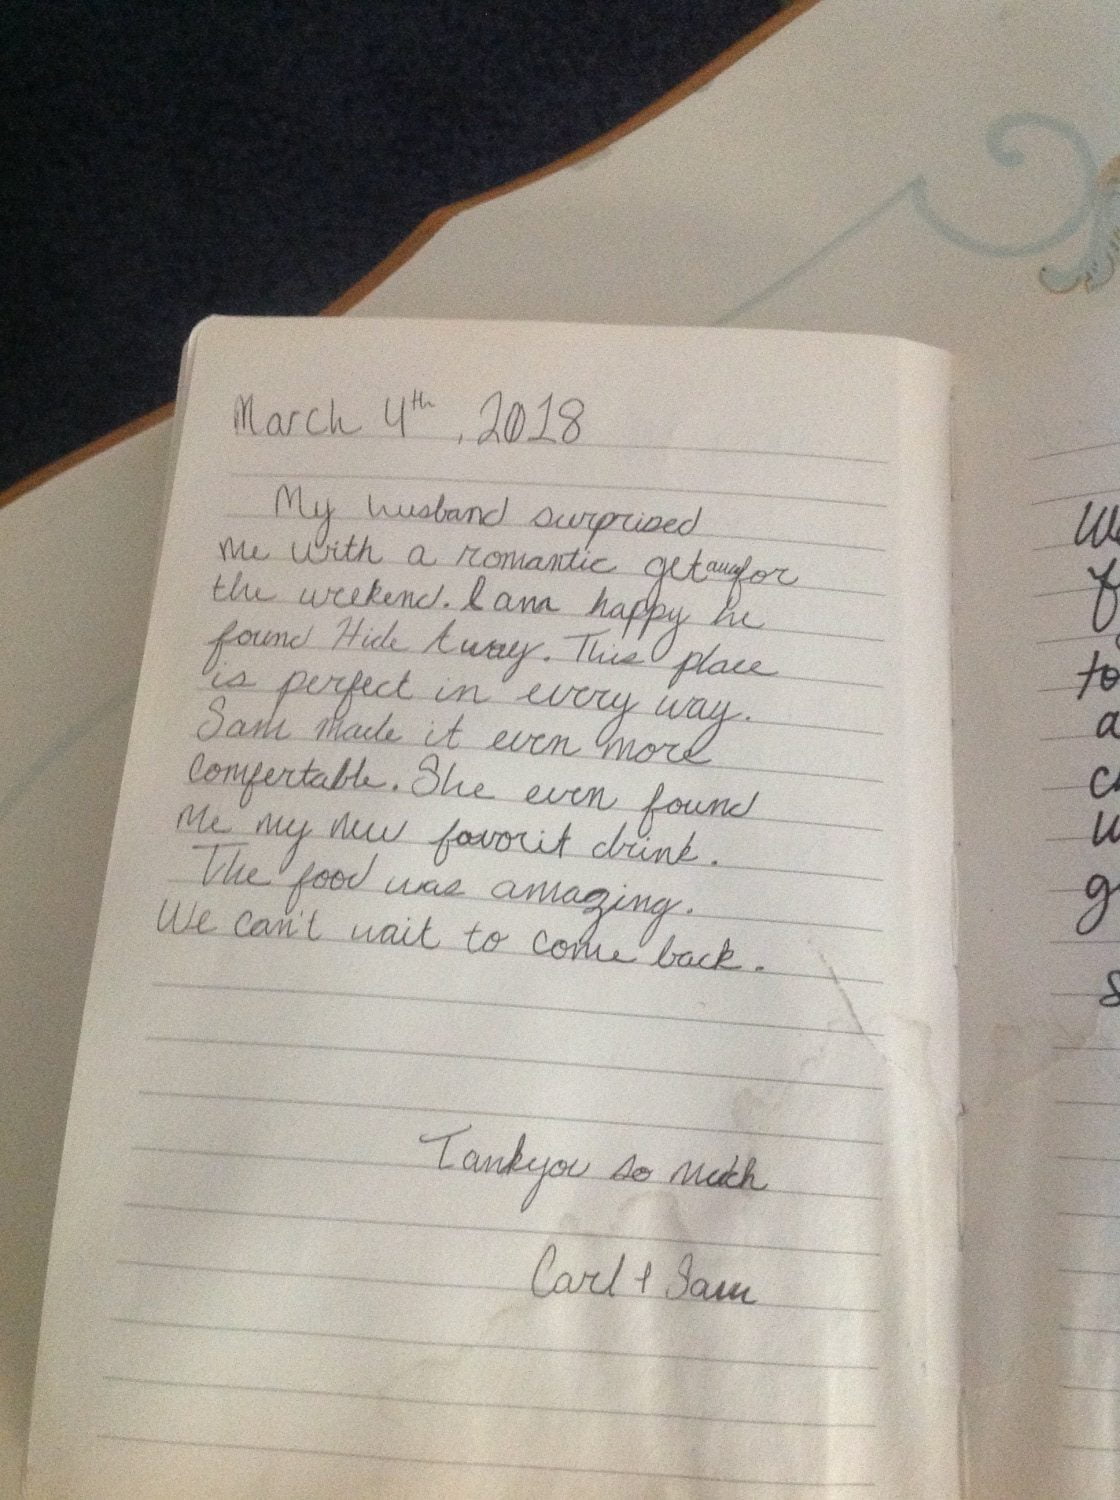 March 4th, 2018
My husband surprised
me with a romantic getaway for
the weekend. I am happy he
found Hide Away. This place
is perfect in every way.
Sam made it even more
comfertable. She even found
me my new favorit drink.
The food was amazing.
We can't wait to come back.
Tankyou so much
Carl + Sam
We
f
to
a
c
w
g
s